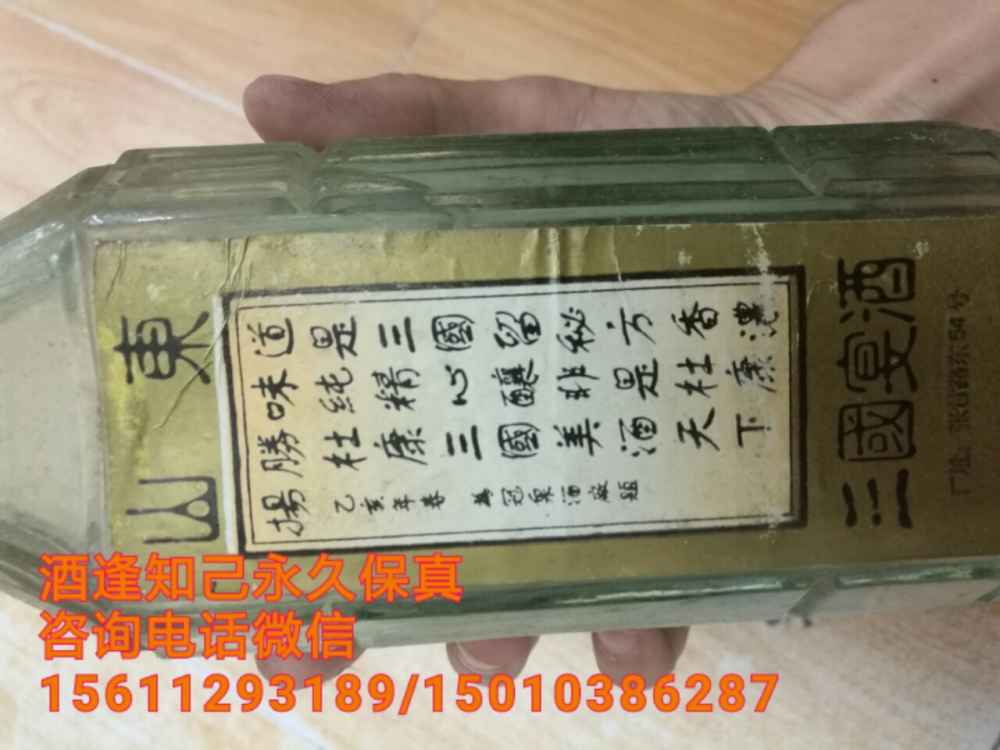 山東
道是三國留秘方香濃
味純精心釀非是杜康
勝杜康三國美酒天下
揚 乙亥年春 為冠泉酒廠題
三國宴酒
厂址：
路东54号
酒逢知己永久保真
咨询电话微信
15611293189/15010386287